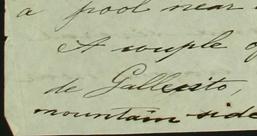 a pool near
A couple of
de Gallecito,
mountain side